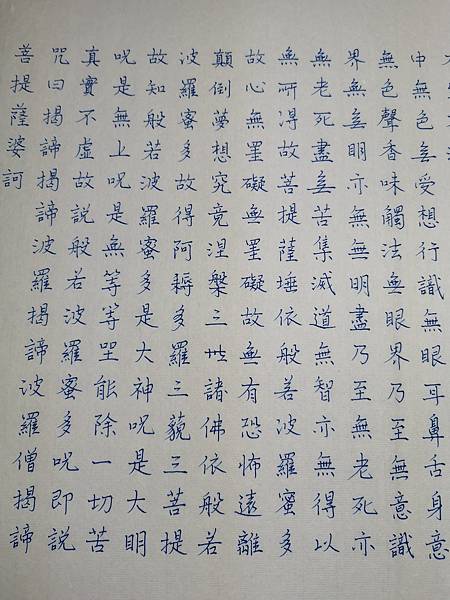 中無色無受想行識無眼耳鼻舌身意
無色聲香味觸法無眼界乃至無意識
界無無明亦無無明盡乃至無老死亦
無老死盡無苦集滅道無智亦無得以
無所得故菩提薩埵依般若波羅蜜多
故心無罣礙無罣礙故無有恐怖遠離
顛倒夢想究竟涅槃三世諸佛依般若
波羅蜜多故得阿耨多羅三藐三菩提
故知般若波羅蜜多是大神呪是大明
呪是無上呪是無等等呪能除一切苦
真實不虛故說般若波羅蜜多呪即說
咒曰揭諦揭諦波羅揭諦波羅僧揭諦
菩提薩婆訶